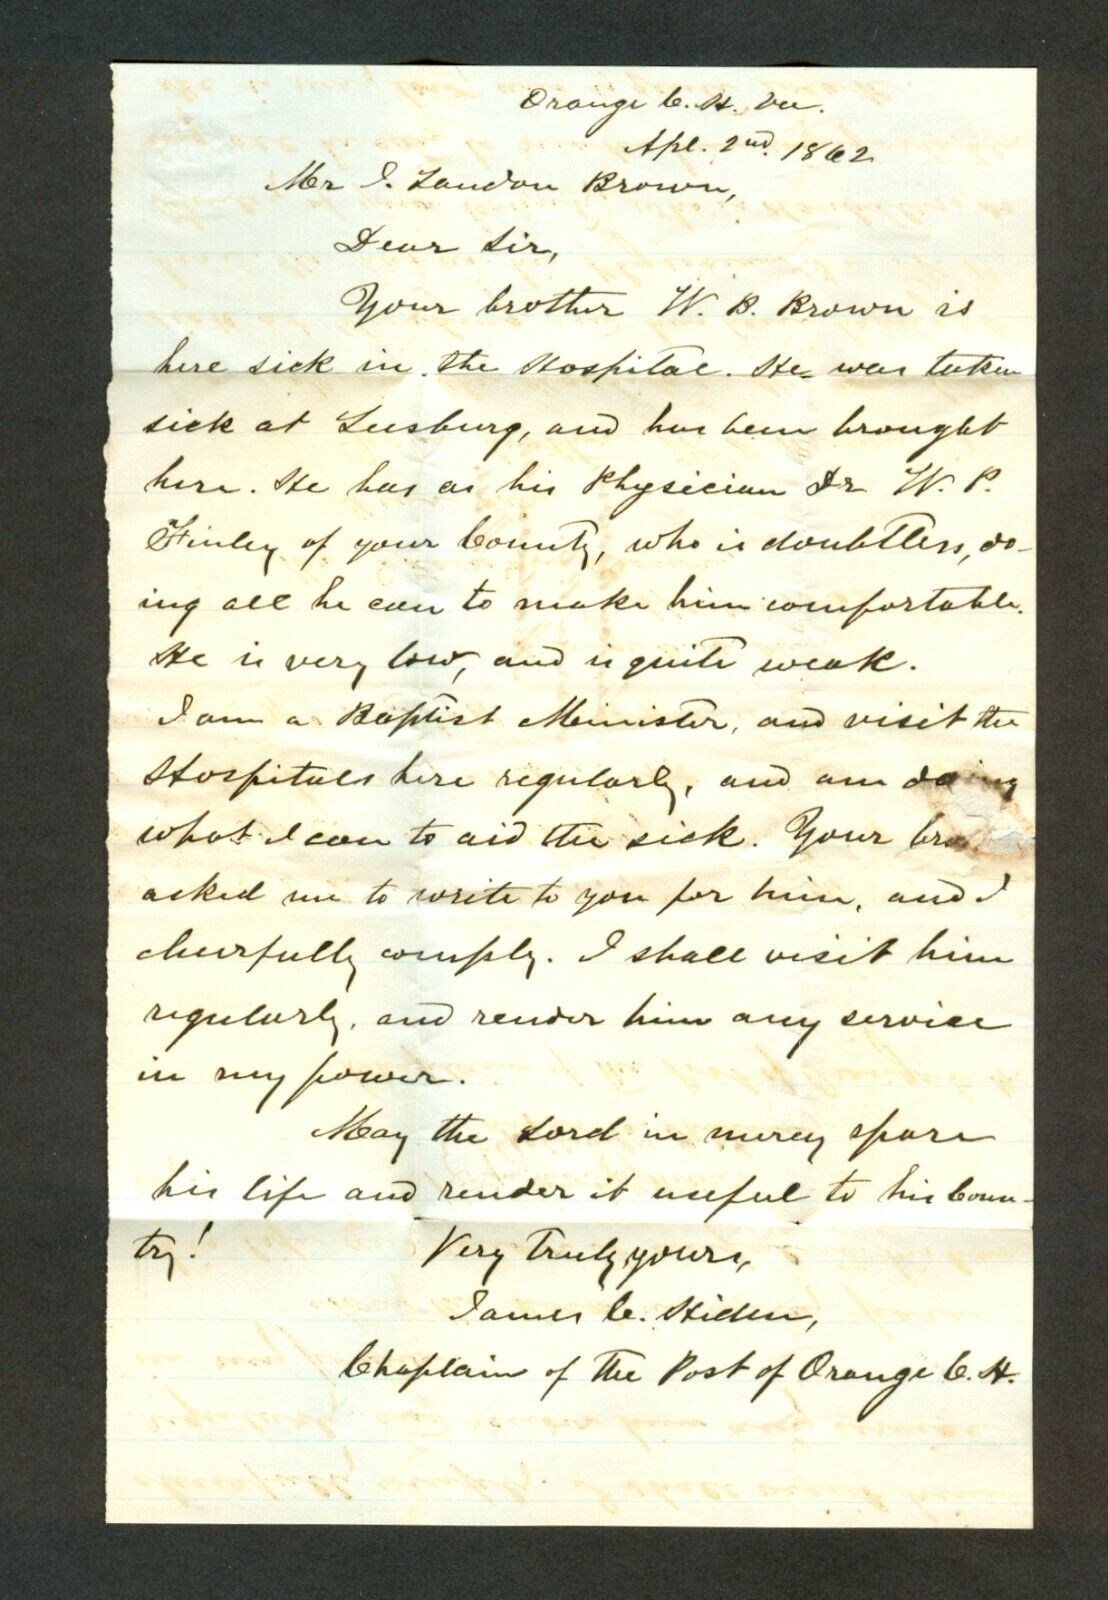 Orange C. H. Va.
Apl. 2nd. 1862
Mr J. Landon Brown,
Dear Sir,
Your brother W. B. Brown is
here sick in the Hospital. He was taken
sick at Leesburg, and has been brought
here. He has as his Physician Dr W. P.
Finley of your County, who is doubtless, do-
ing all he can to make him comfortable.
He is very low, and is quite weak.
I am a Baptist Minister, and visit the
Hospitals here regularly, and am doing
what I can to aid the sick. Your bro
asked me to write to you for him, and I
cheerfully comply. I shall visit him
regularly, and render him any service
in my power.
May the Lord in mercy spare
his life and render it useful to his Coun-
try! Very truly yours,
James C. Hiden,
Chaplain of the Post of Orange C. H.